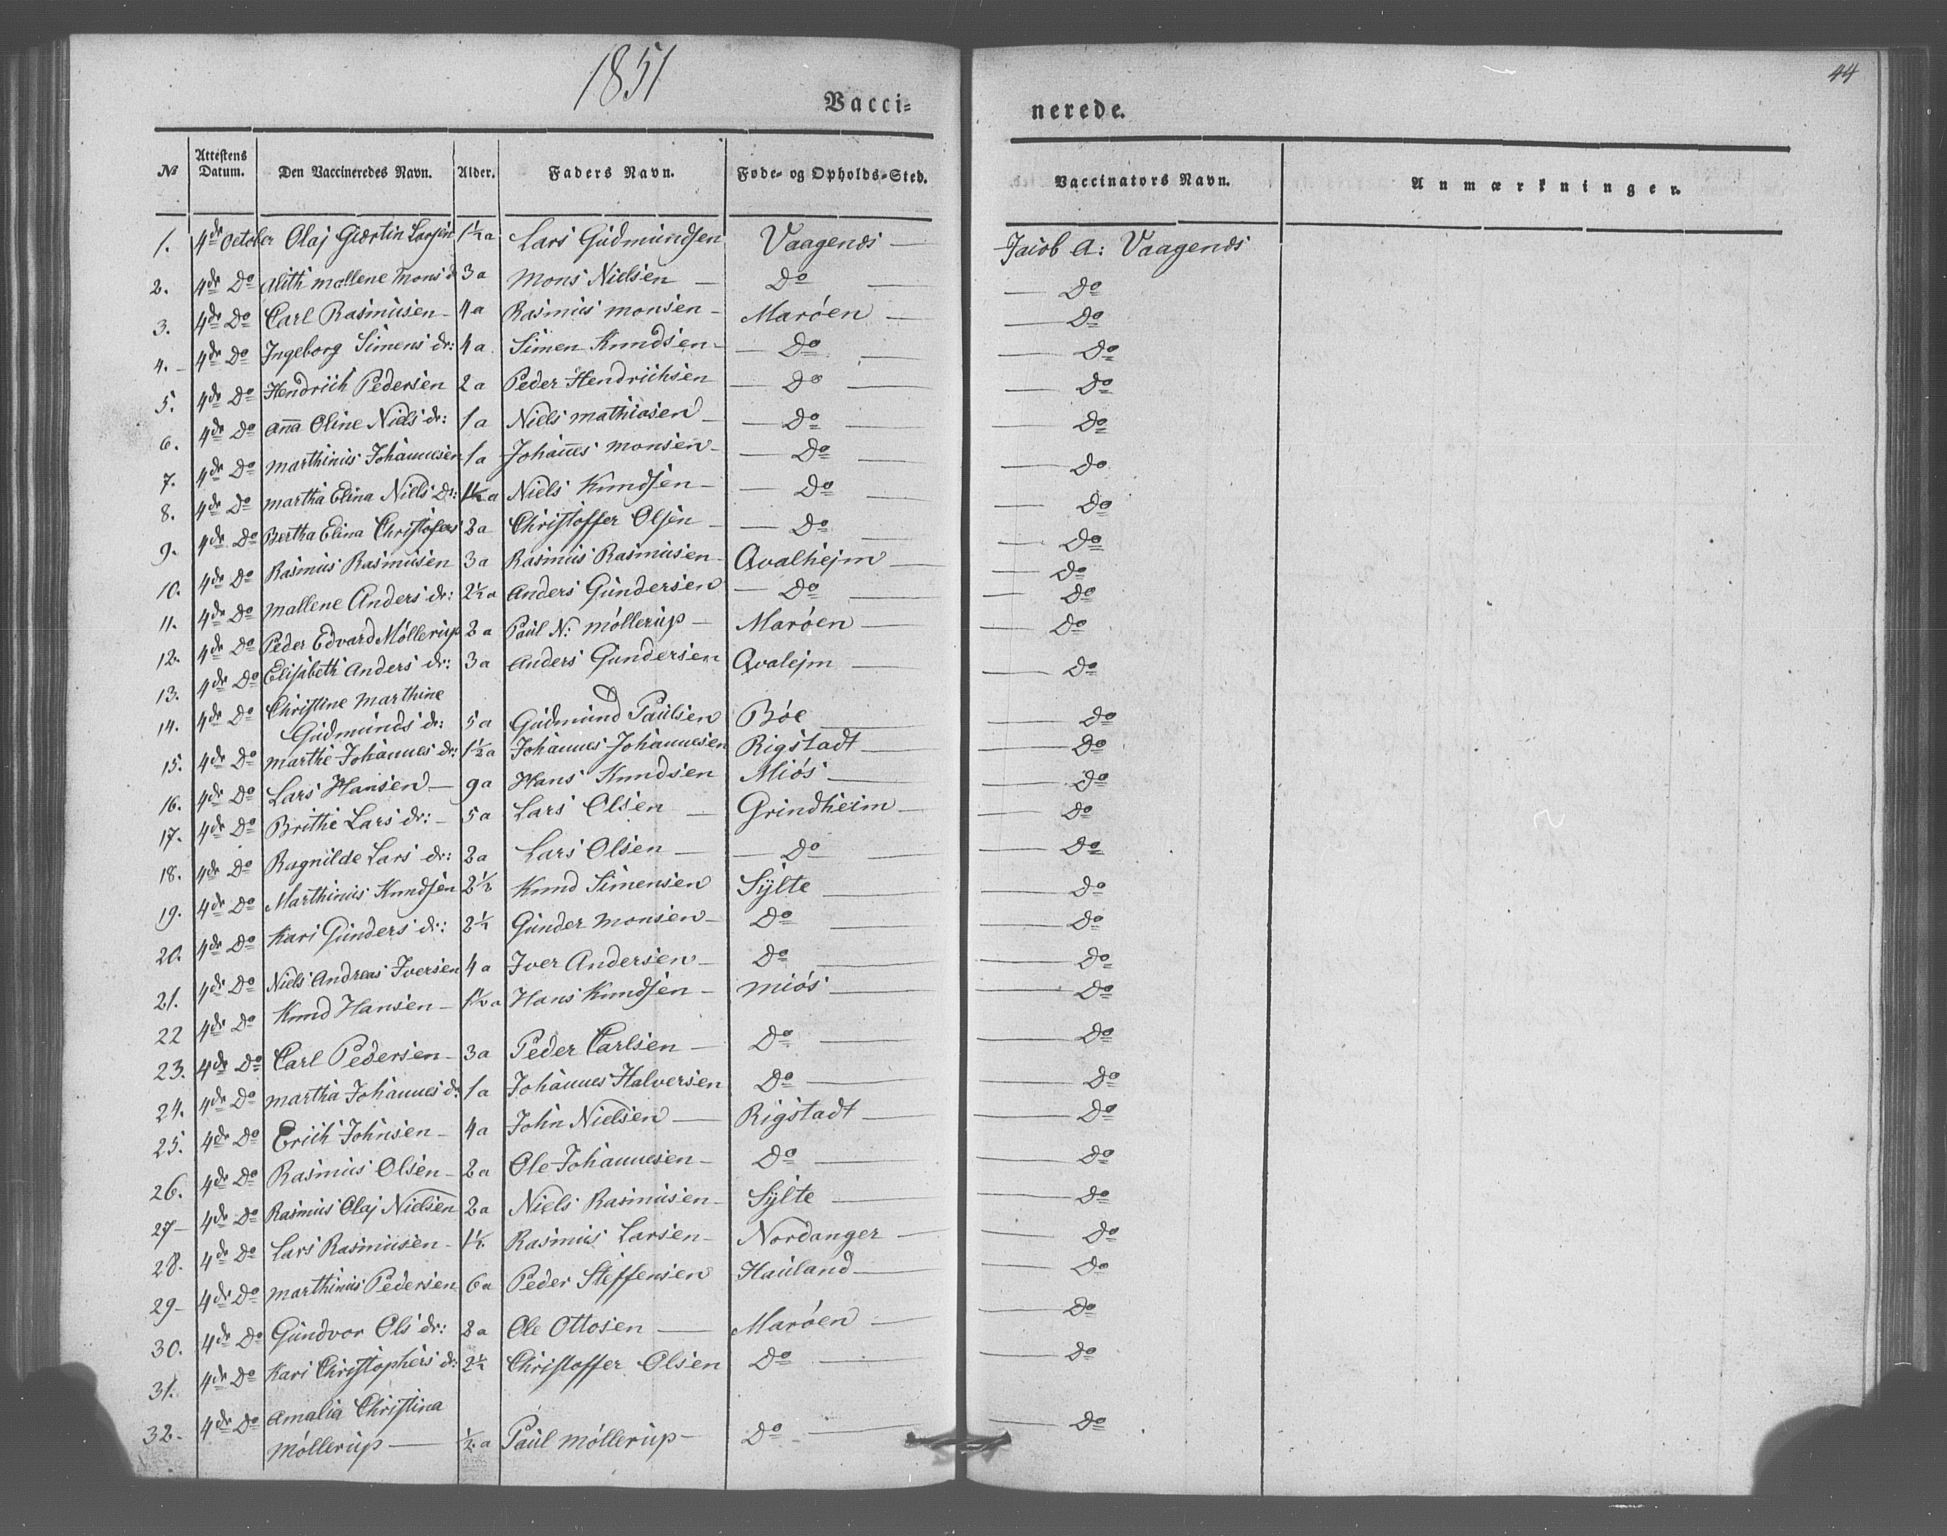 1851
44
Vacci- nerede.
№ Attestens Datum. Den Vaccineredes Navn. Alder. Faders Navn. Føde- og Opholds-Sted. Vaccinators Navn. Anmærkninger.
1. 4de October Olaj Giertin Larsen 1½ a Lars Gúdmúndsen Vaagenæs — Jacob A: Vaagenæs
2. 4de Do Alith Mallene Mons d 3 a Mons Nielsen — Do — — Do
3. 4de Do Carl Rasmúsen — 4 a Rasmús Monsen — Maróen — — Do
4. 4de Do Ingeborg Simens dr: 4 a Simen Knudsen — — Do — — Do
5. 4de Do Hendrich Pedersen 2 a Peder Hendrichsen — Do — — Do
6. 4de Do Anna Oline Niels dr: 1 a Niels Mathiasen — — Do — — Do
7. 4de Do Marthinús Johannesen 1 a Johannes Monsen — — Do — — Do
8. 4de Do Martha Elina Niels Dr: 1½ a Niels Knudsen — — Do — — Do
9. 4de Do Bertha Elina Christofers 2 a Christoffer Olsen — — Do — — Do
10. 4de Do Rasmús Rasmúsen 3 a Rasmús Rasmúsen — Qvalhejm — — Do
11. 4de Do Mallene Anders dr: 2½ a Anders Gúndersen — Do — — Do
12. 4de Do Peder Edvard Móllerúp 2 a Paúl N: Móllerúp — Maróen — — Do
13. 4de Do Elisabeth Anders dr: 3 a Anders Gúndersen Qvalejm — — Do
14. 4de Do Christine Marthine
Gúdmúnds dr: 5 a Gúdmúnd Paúlsen Bóe — — Do
15. 4de Do Marthe Johannes dr: 1½ a Johannes Johannesen Rigstadt — — Do
16. 4de Do Lars Hansen — 9 a Hans Knudsen Miós — — Do
17. 4de Do Brithe Lars dr: — 5 a Lars Olsen — Grindheim — — Do
18. 4de Do Ragnilde Lars dr: 2 a Lars Olsen — — Do — — Do
19. 4de Do Marthinús Knudsen 2½ Knud Simensen Sylte — — Do
20. 4de Do Kari Gúnders dr: 2½ Gúnder Monsen — Do — — Do
21. 4de Do Niels Andreas Iversen 4 a Iver Andersen — Do — — Do
22 4de Do Knud Hansen — 1½ a Hans Knudsen — Miós — — Do
23. 4de Do Carl Pedersen — 3 a Peder Carlsen — Do — — Do
24. 4de Do Martha Johannes d: 1 a Johannes Halversen Do — — Do
25. 4de Do Erich Johnsen — 4 a John Nielsen — Rigstadt — — Do
26. 4de Do Rasmús Olsen — 2 a Ole Johannesen — Do — — Do
27 — 4de Do Rasmús Olaj Nielsen 2 a Niels Rasmúsen — Sylte — — Do
28. 4de Do Lars Rasmúsen — 1½ Rasmús Larsen — Nordanger — — Do
29 — 4de Do Marthinús Pedersen 6 a Peder Steffensen Haúland — — Do
30. 4de Do Gúndvor Ols dr: 2 a Ole Ottosen — Maróen — — Do
31. 4de Do Kari Christophers d: 2½ Christoffer Olsen Do — — Do
32. 4de Do Amalia Christina
Móllerúp — ½ a Paúl Móllerúp — Do — — Do